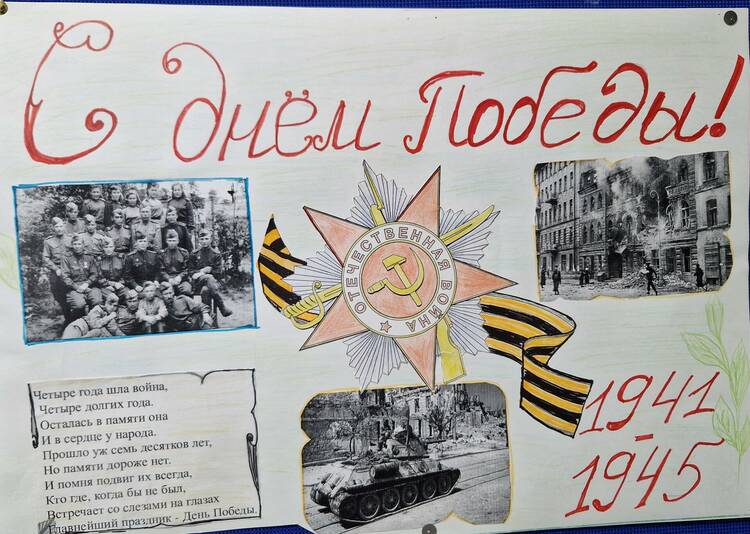 С днём Победы!
ОТЕЧЕСТВЕННАЯ ВОЙНА
1941
-
1945
Четыре года шла война,
Четыре долгих года.
Осталась в памяти она
И в сердце у народа.
Прошло уж семь десятков лет,
Но памяти дороже нет.
И помня подвиг их всегда,
Кто где, когда бы не был,
Встречает со слезами на глазах
Главнейший праздник - День Победы.